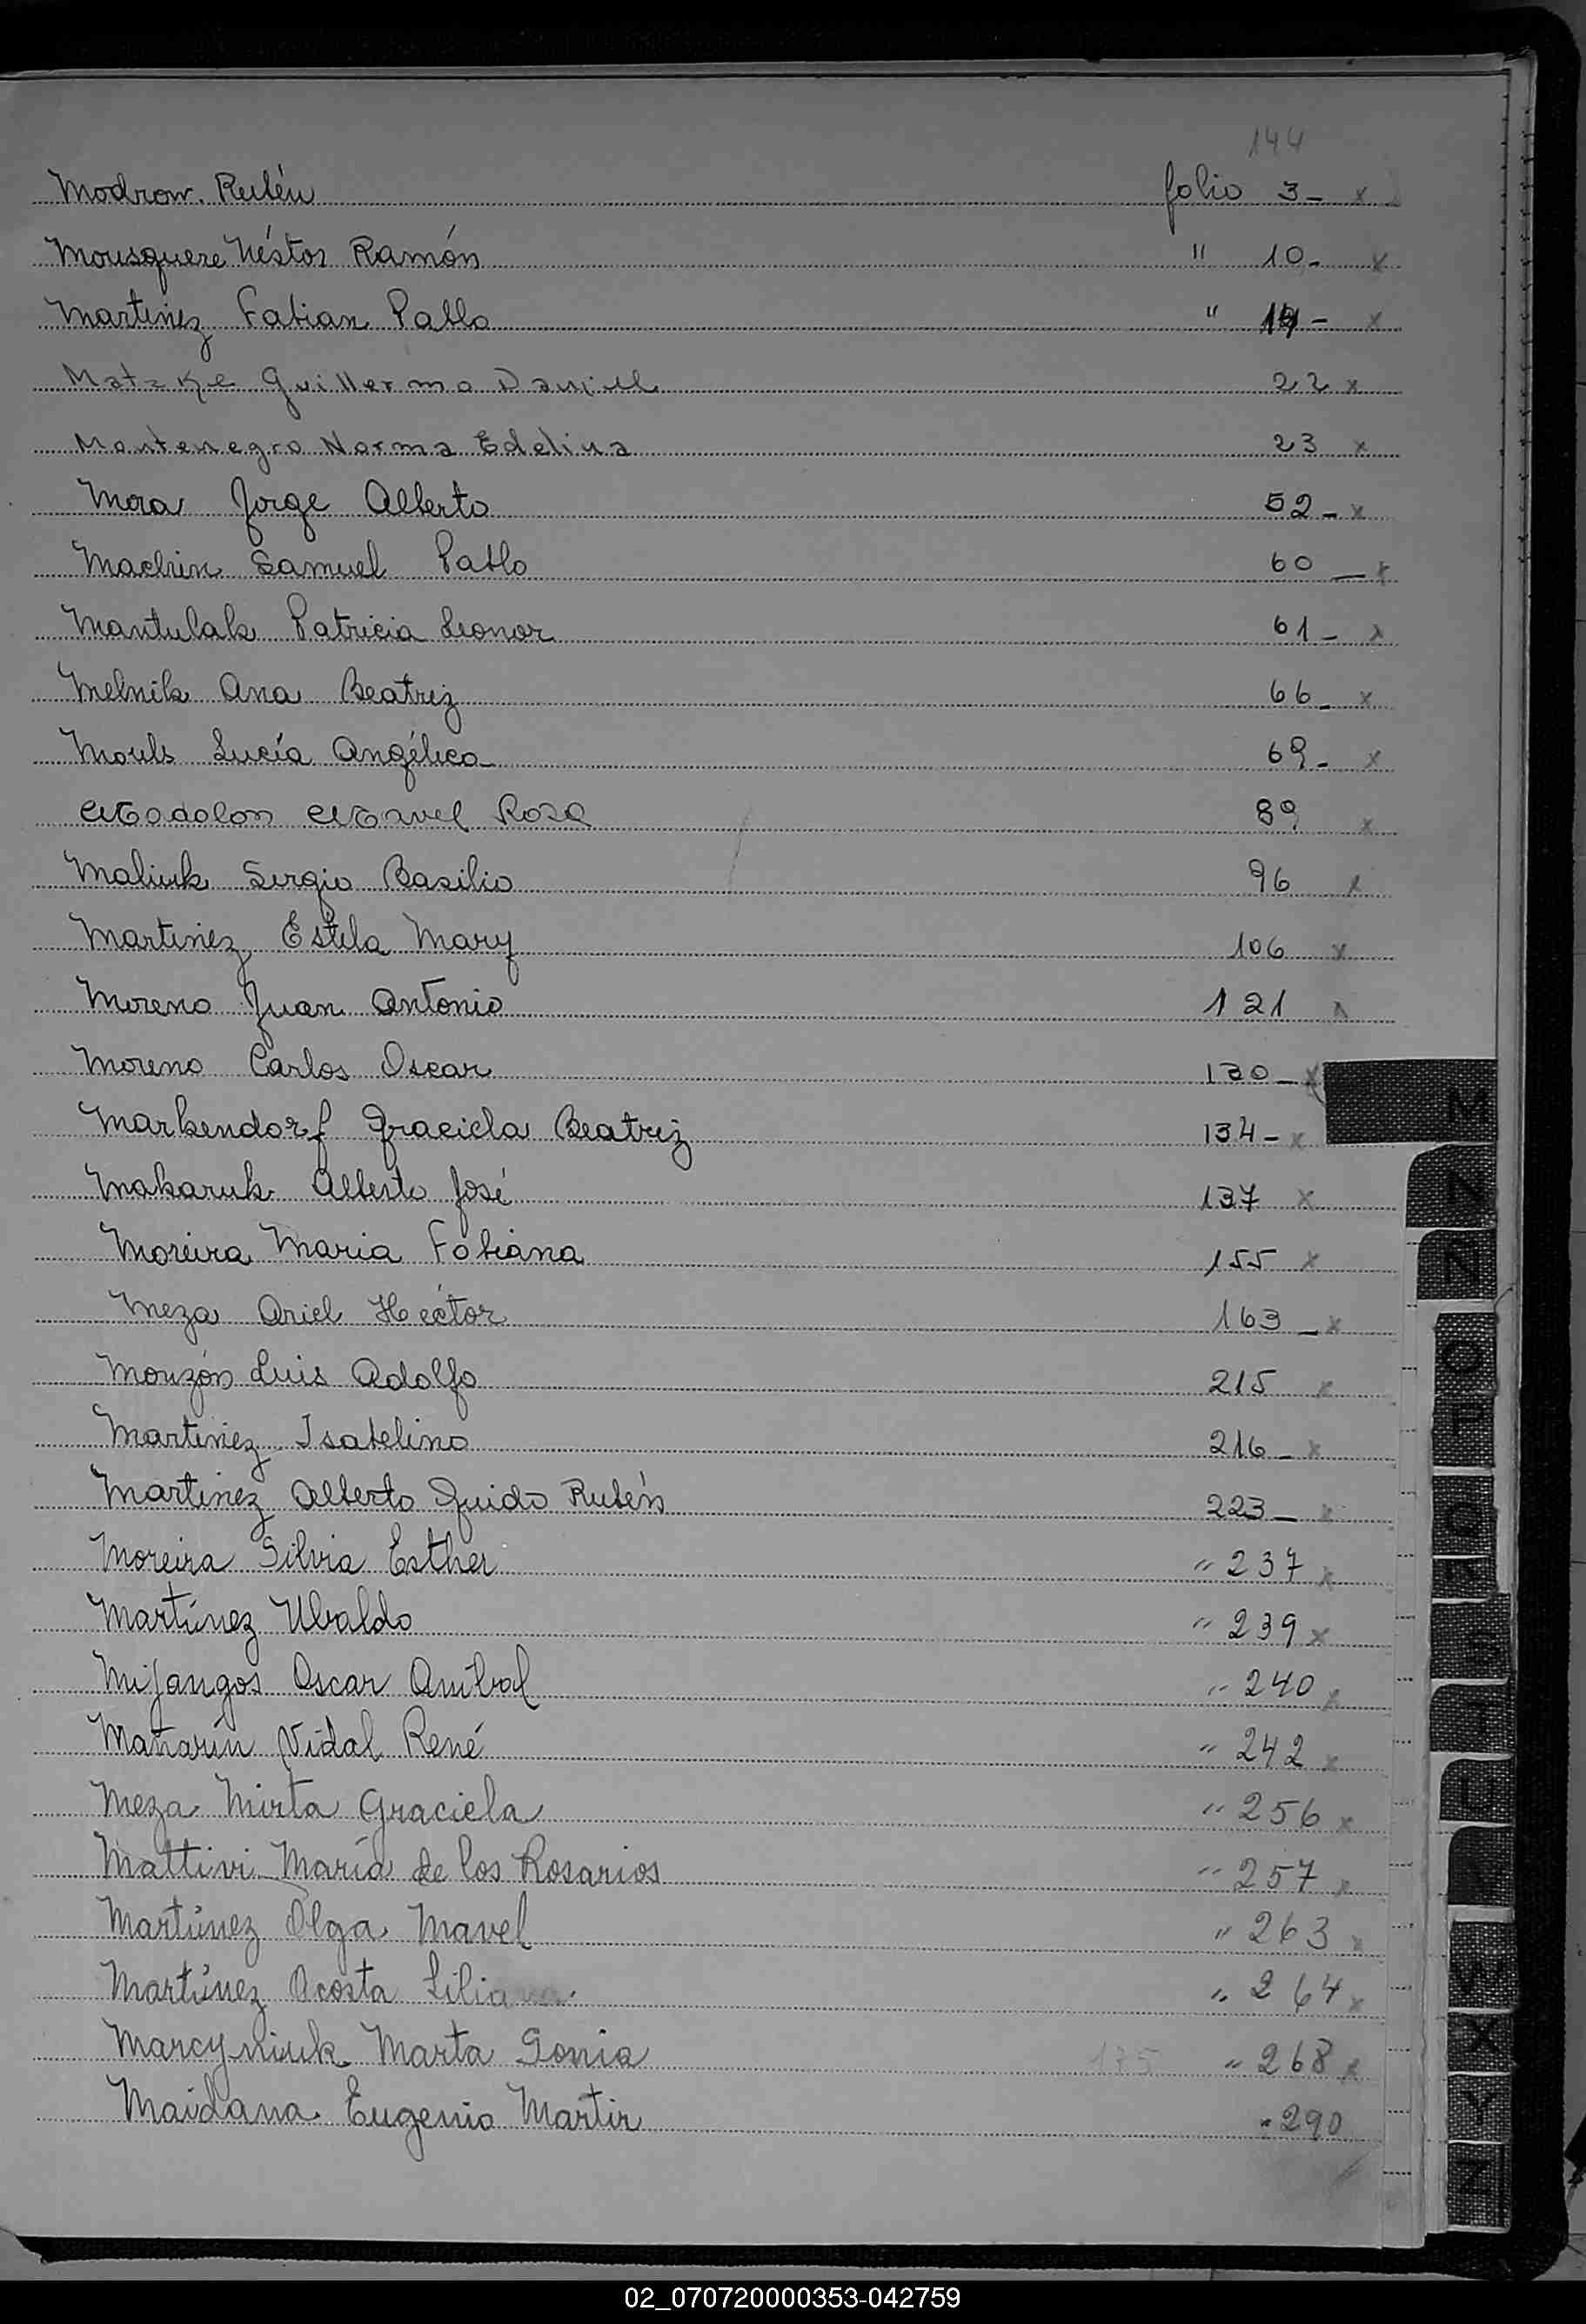 144
Modrow. Rubén folio 3- x
Mousquere Néstor Ramón " 10- x
Martinez Fabian Pablo " - x
Matzke Guillermo Daniel 22 x
Montenegro Norma Edelina 23 x
Mora Jorge Alberto 52- x
Machin Samuel Pablo 60 - x
Mantulak Patricia Leonor 61- x
Melnik Ana Beatriz 66- x
Lucía Angélica 69- x
Modolon Mavel Rosa 89 x
Maliuk Sergio Basilio 96 x
Martinez Estela Mary 106 x
Moreno Juan Antonio 121 x
Moreno Carlos Oscar 130- x
Markendorf Graciela Beatriz 134- x
Makaruk Alberto José 137 x
Moreira Maria Fabiana 155 x
Meza Ariel Héctor 163 - x
Monzón Luis Adolfo 215 x
Martinez Isabelino 216- x
Martinez Alberto Guido Rubén 223- x
Moreira Silvia Esther " 237 x
Martínez Ubaldo " 239 x
Mijangos Oscar Anibal " 240 x
Mañarín Vidal René " 242 x
Meza Mirta Graciela " 256 x
Mattivi María de los Rosarios " 257 x
Martínez Olga Mavel " 263 x
Martínez Acosta Liliana " 264 x
Marcyniuk Marta Sonia 175 " 268 x
Maidana Eugenio Martir " 290
M
N
Ñ
O
P
Q
R
S
T
U
V
W
X
Y
Z
02_070720000353-042759